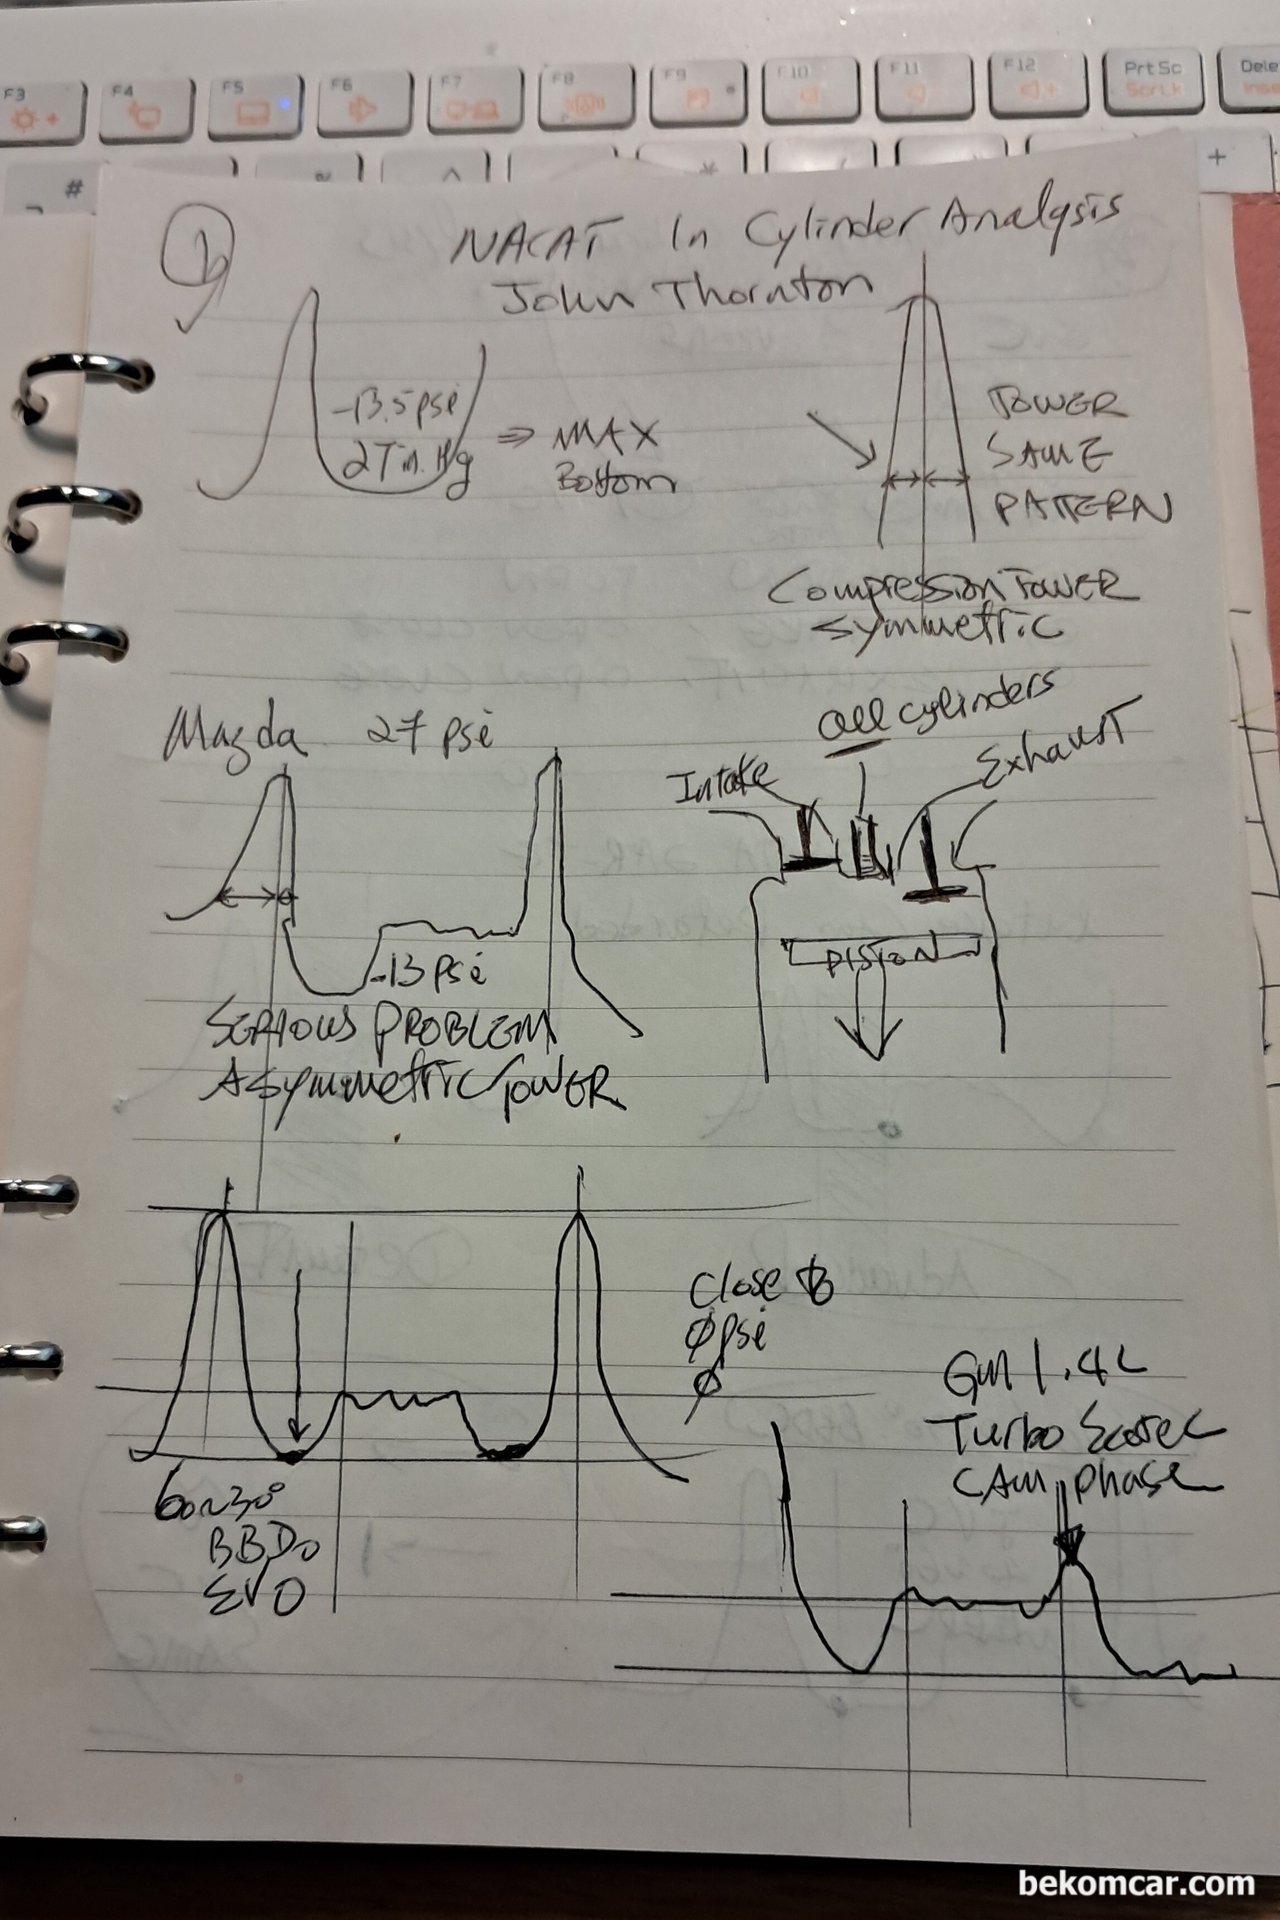 F3
F4
F5
F6
F7
F8
F9
F10
F11
F12
PrtSc
ScrLk
Dele
Inse
#
+
NACAT In Cylinder Analysis
John Thornton
-13.5 psi
27 in. Hg
⇒ MAX
Bottom
TOWER
SAME
PATTERN
Compression TOWER
Symmetric
Mazda 27 psi
-13 psi
SERIOUS PROBLEM
Asymmetric TOWER
All cylinders
Intake
Exhaust
PISTON
Close to
Ø psi
Ø
60~30°
BBDC
EVO
GM 1.4L
Turbo Ecotec
CAM phase
bekomcar.com